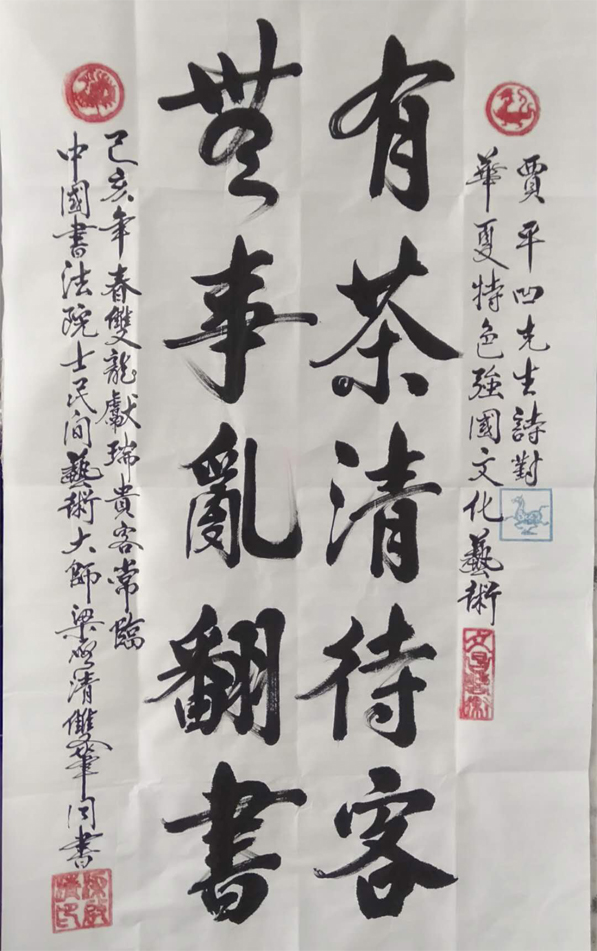 賈平凹先生詩對
華夏特色強國文化藝術
有茶清待客
無事亂翻書
己亥年春雙龍獻瑞貴客常臨
中國書法院士民间藝術大師梁啓清雙筆同書